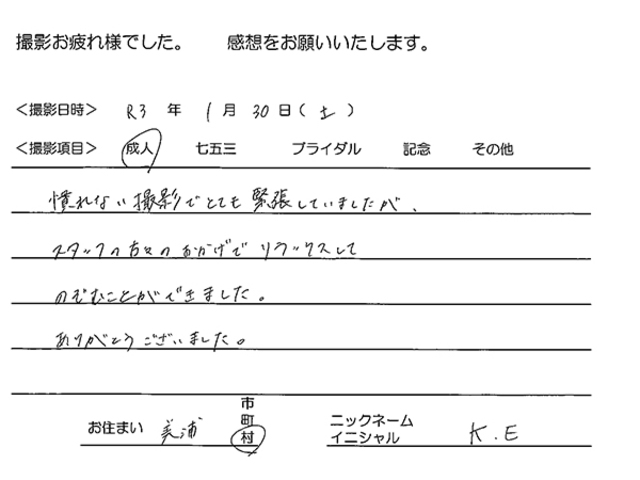 撮影お疲れ様でした。 感想をお願いいたします。
＜撮影日時＞ R3 年 1 月 30 日（ 土 ）
＜撮影項目＞ 成人 七五三 ブライダル 記念 その他
慣れない撮影でとても緊張していましたが、
スタッフの方々のおかげでリラックスして
のぞむことができました。
ありがとうございました。
お住まい 美浦 市町村
ニックネーム
イニシャル K.E